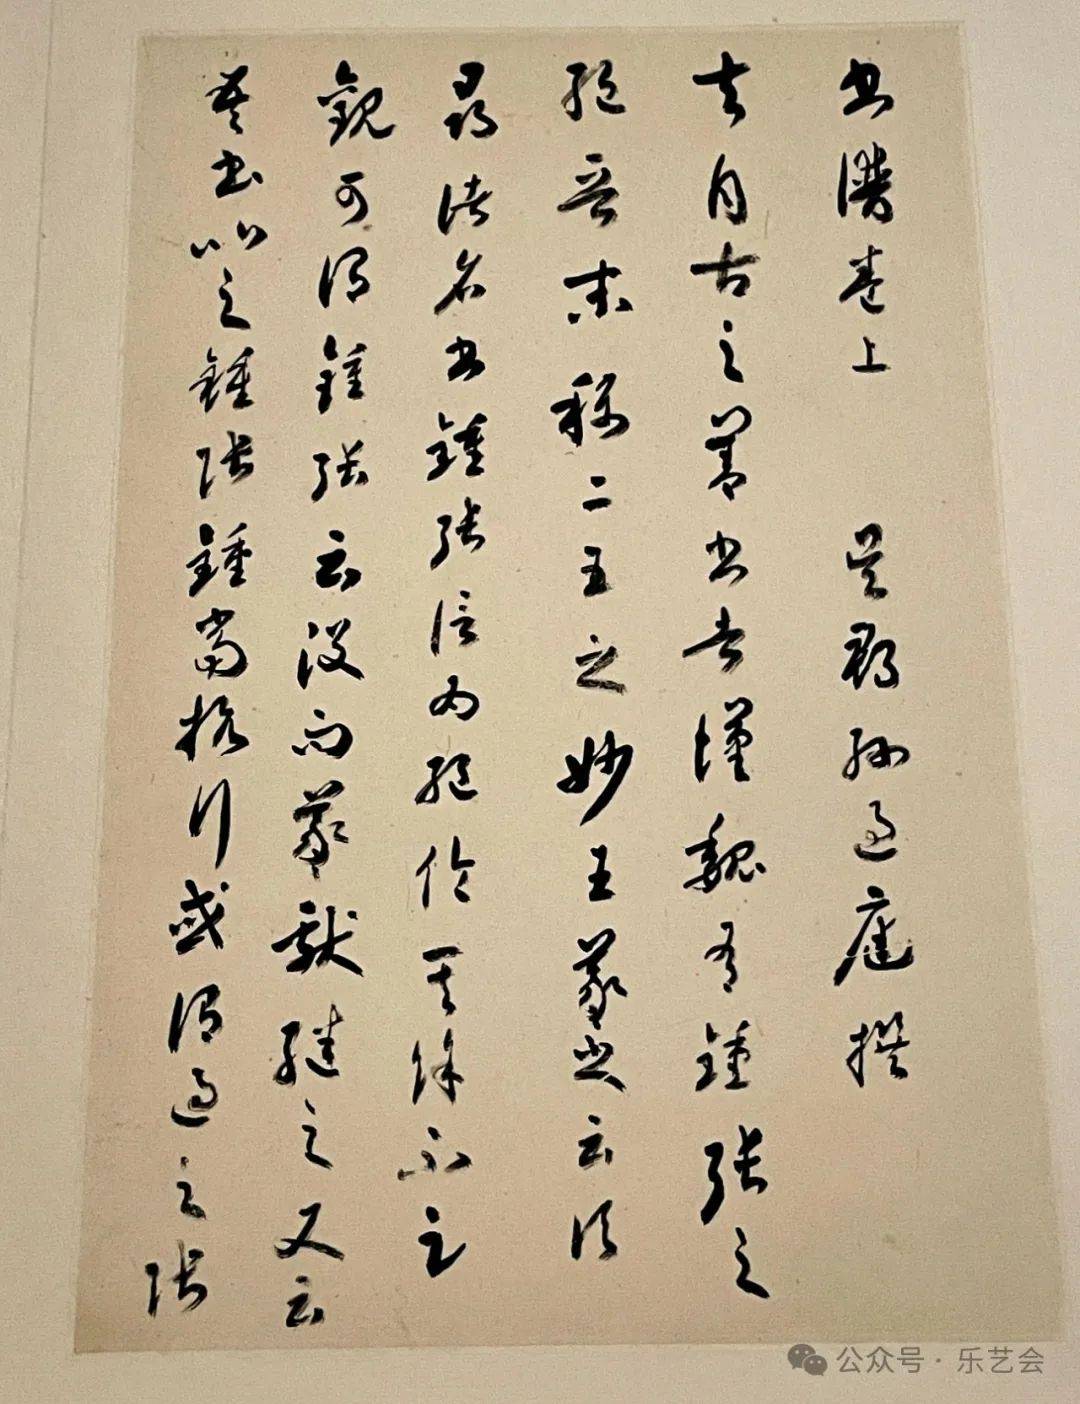 書譜卷上 吳郡孫過庭撰
夫自古之善書者漢魏有鍾張之
絕晉末稱二王之妙王羲之云頃
尋諸名書鍾張信為絕倫其餘不足
觀可謂鍾張云沒而羲獻繼之又云
吾書比之鍾張鍾當抗行或謂過之張
公众号·乐艺会